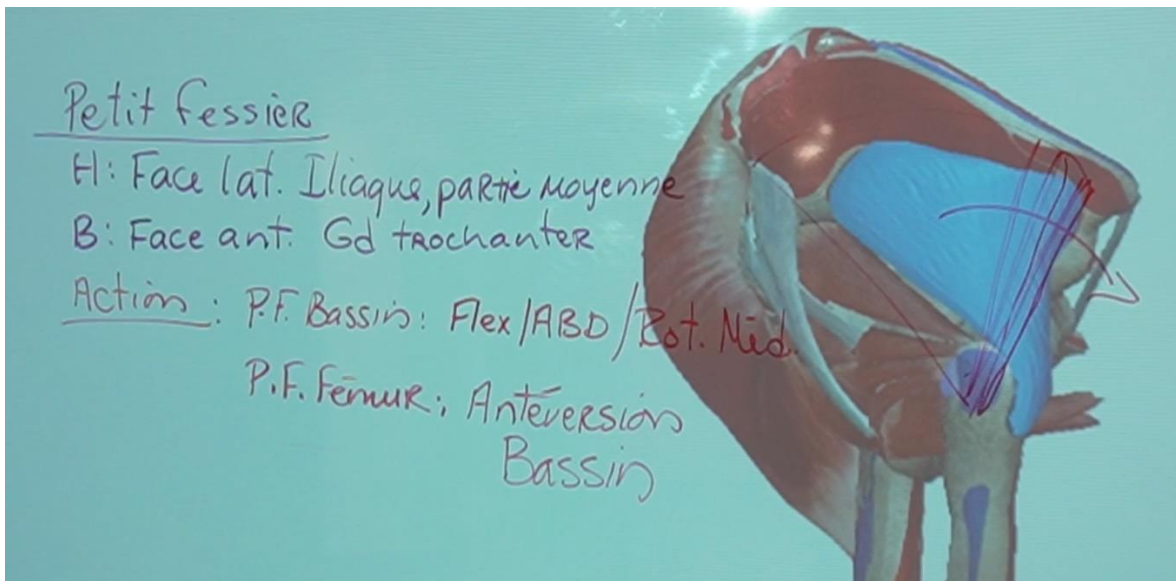 Petit fessier
H: Face lat. Iliaque, partie moyenne
B: Face ant. Gd trochanter
Action : P.F. Bassin: Flex/ABD/Rot. Méd.
P.F. Fémur: Antéversion
Bassin